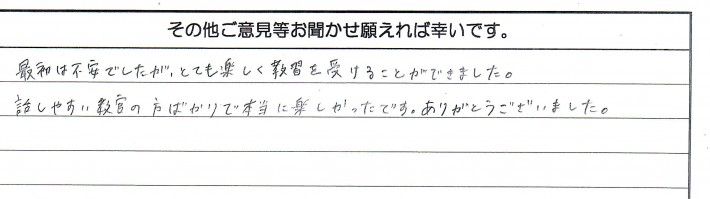 その他ご意見等お聞かせ願えれば幸いです。
最初は不安でしたが、とても楽しく教習を受けることができました。
話しやすい教官の方ばかりで本当に楽しかったです。ありがとうございました。